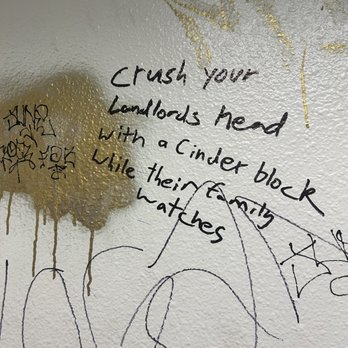 Crush your
Landlords head
with a Cinder block
while their family
watches